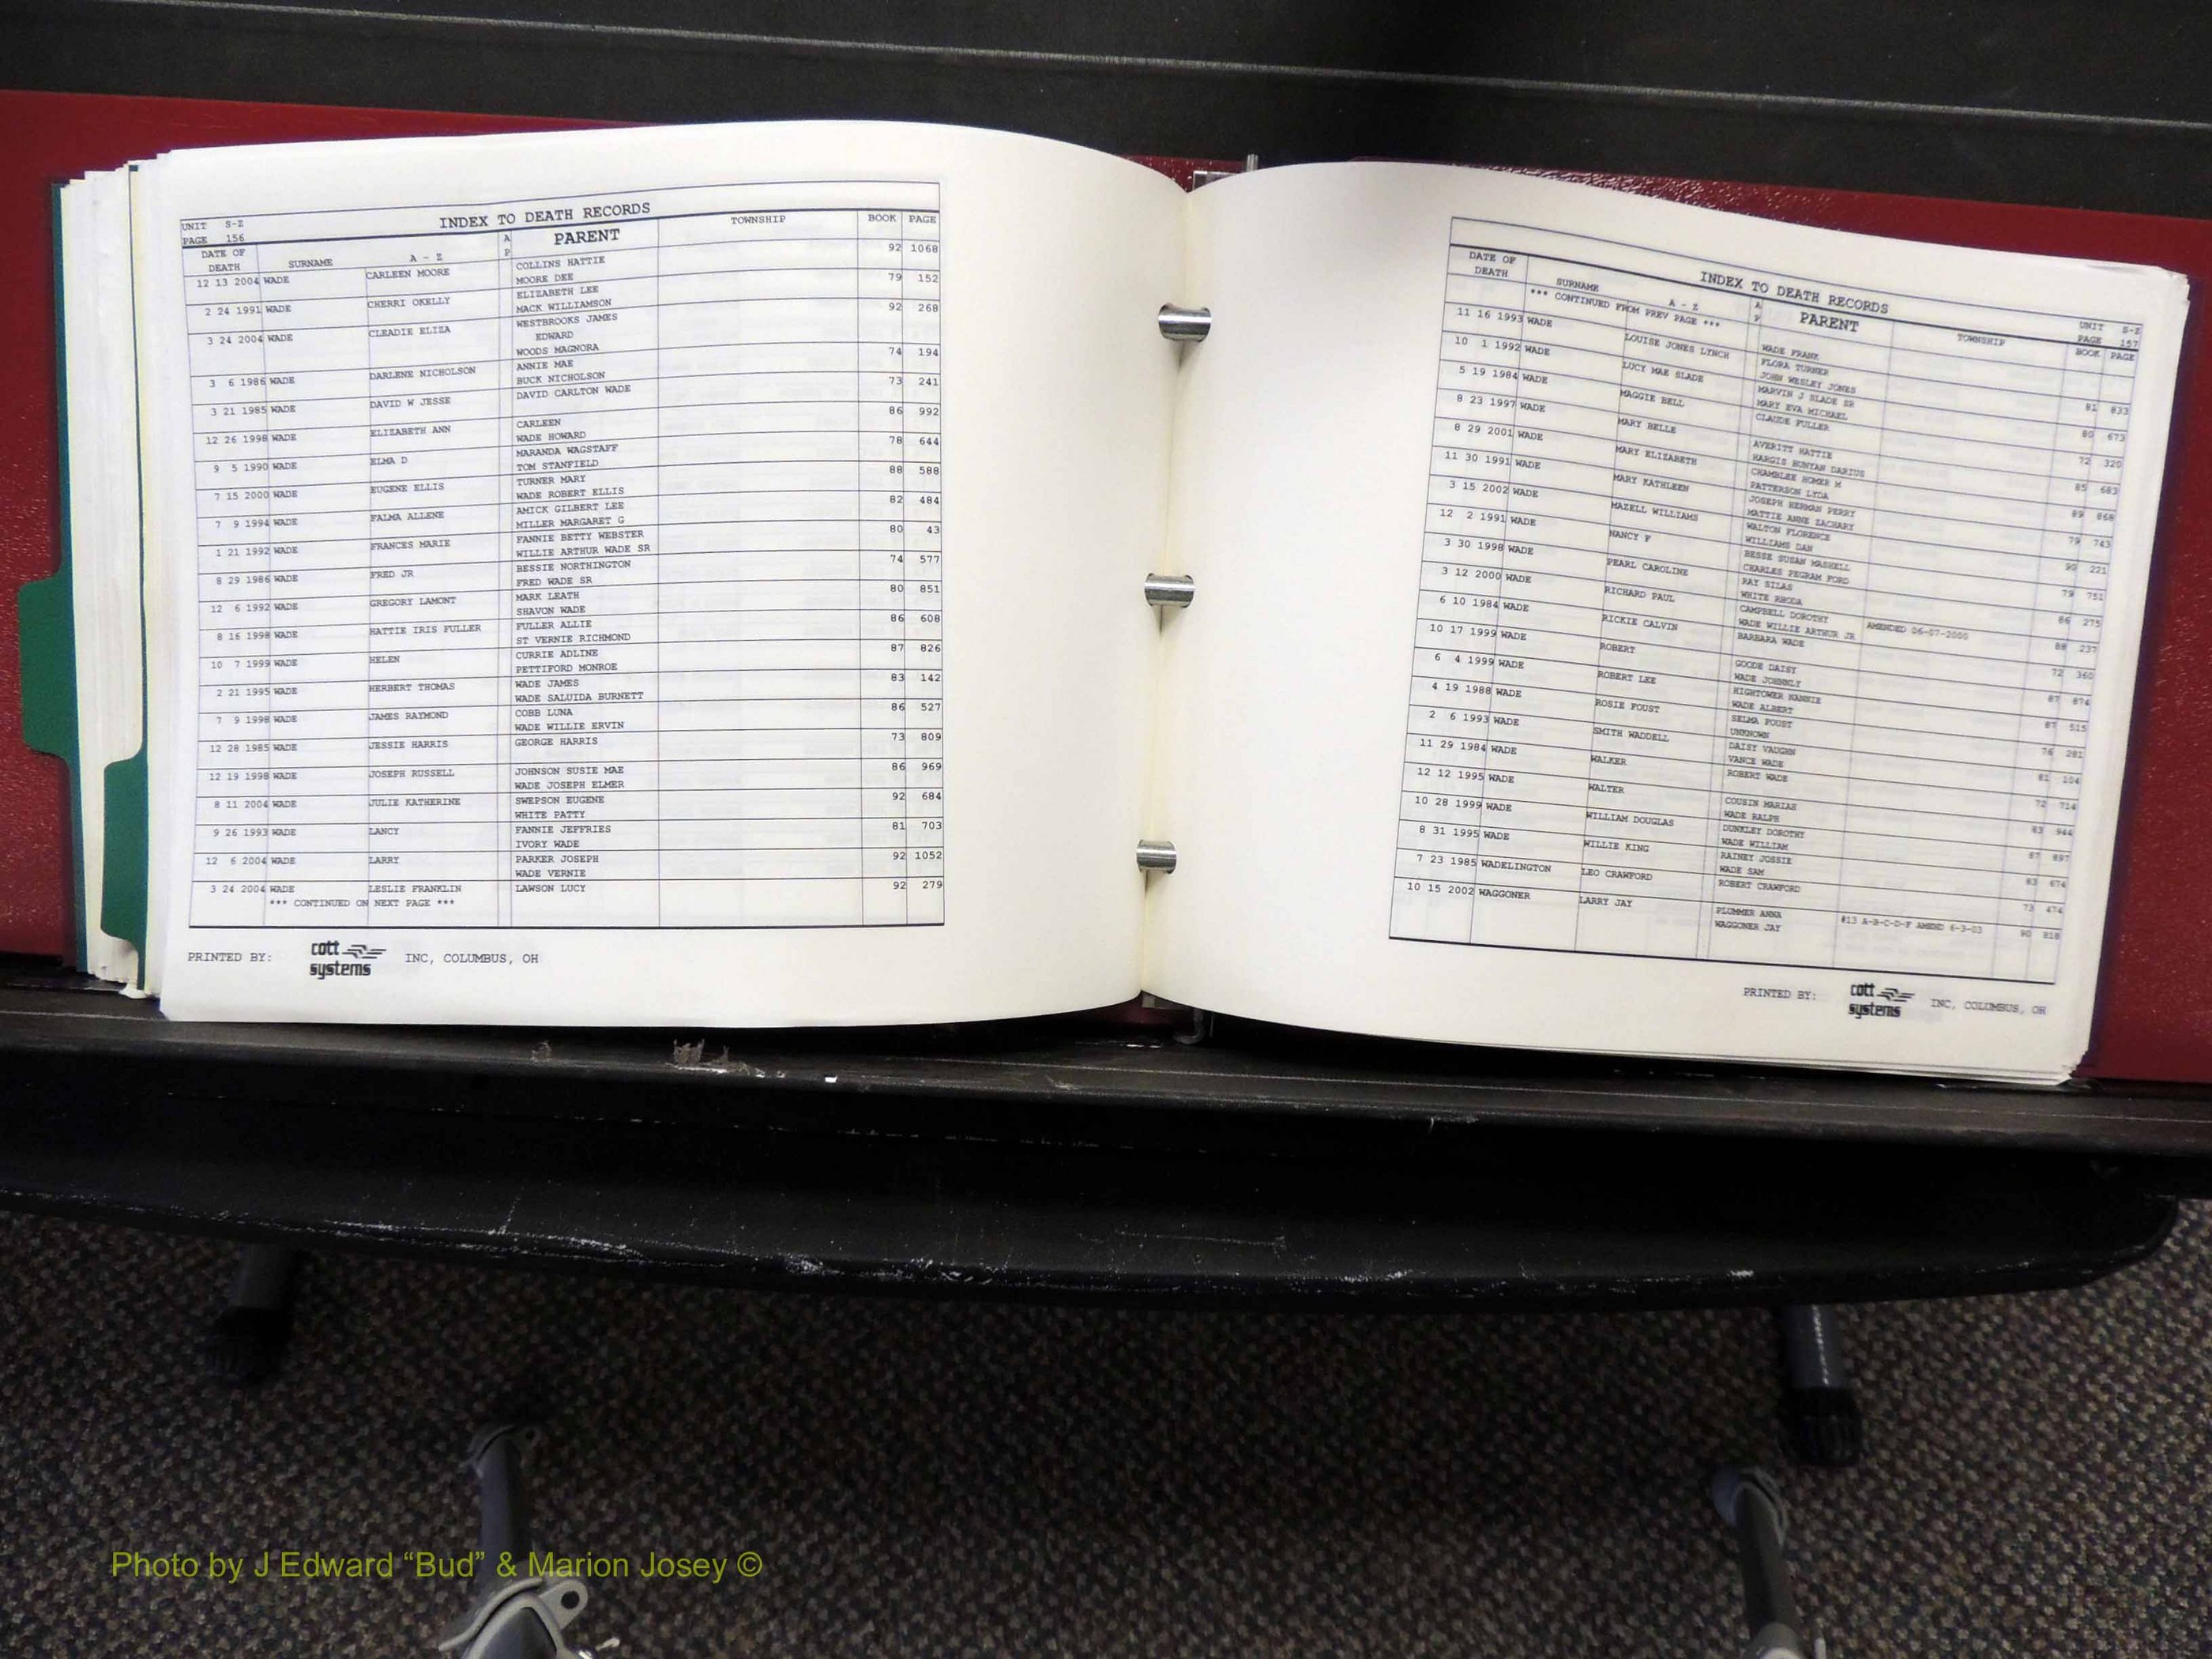 UNIT S-Z
PAGE 156
INDEX TO DEATH RECORDS
DATE OF DEATH SURNAME A - Z A P PARENT TOWNSHIP BOOK PAGE
12 13 2004 WADE CARLEEN MOORE COLLINS HATTIE 92 1068
MOORE DEE
2 24 1991 WADE CHERRI OKELLY ELIZABETH LEE 79 152
MACK WILLIAMSON
3 24 2004 WADE CLEADIE ELIZA WESTBROOKS JAMES 92 268
EDWARD
WOODS MAGNORA
3 6 1986 WADE DARLENE NICHOLSON ANNIE MAE 74 194
BUCK NICHOLSON
3 21 1985 WADE DAVID W JESSE DAVID CARLTON WADE 73 241
12 26 1998 WADE ELIZABETH ANN CARLEEN 86 992
WADE HOWARD
9 5 1990 WADE ELMA D MARANDA WAGSTAFF 78 644
TOM STANFIELD
7 15 2000 WADE EUGENE ELLIS TURNER MARY 88 588
WADE ROBERT ELLIS
7 9 1994 WADE FALMA ALLENE AMICK GILBERT LEE 82 484
MILLER MARGARET G
1 21 1992 WADE FRANCES MARIE FANNIE BETTY WEBSTER 80 43
WILLIE ARTHUR WADE SR
8 29 1986 WADE FRED JR BESSIE NORTHINGTON 74 577
FRED WADE SR
12 6 1992 WADE GREGORY LAMONT MARK LEATH 80 851
SHAVON WADE
8 16 1998 WADE HATTIE IRIS FULLER FULLER ALLIE 86 608
ST VERNIE RICHMOND
10 7 1999 WADE HELEN CURRIE ADLINE 87 826
PETTIFORD MONROE
2 21 1995 WADE HERBERT THOMAS WADE JAMES 83 142
WADE SALUIDA BURNETT
7 9 1998 WADE JAMES RAYMOND COBB LUNA 86 527
WADE WILLIE ERVIN
12 28 1985 WADE JESSIE HARRIS GEORGE HARRIS 73 809
12 19 1998 WADE JOSEPH RUSSELL JOHNSON SUSIE MAE 86 969
WADE JOSEPH ELMER
8 11 2004 WADE JULIE KATHERINE SWEPSON EUGENE 92 684
WHITE PATTY
9 26 1993 WADE LANCY FANNIE JEFFRIES 81 703
IVORY WADE
12 6 2004 WADE LARRY PARKER JOSEPH 92 1052
WADE VERNIE
3 24 2004 WADE LESLIE FRANKLIN LAWSON LUCY 92 279
*** CONTINUED ON NEXT PAGE ***
PRINTED BY: cott systems INC, COLUMBUS, OH
INDEX TO DEATH RECORDS
UNIT S-Z
PAGE 157
DATE OF DEATH SURNAME A - Z A P PARENT TOWNSHIP BOOK PAGE
*** CONTINUED FROM PREV PAGE ***
WADE FRANK
11 16 1993 WADE LOUISE JONES LYNCH FLORA TURNER 81 833
JOHN WESLEY JONES
10 1 1992 WADE LUCY MAE SLADE MARVIN J SLADE SR 80 673
MARY EVA MICHAEL
5 19 1984 WADE MAGGIE BELL CLAUDE FULLER 72 320
8 23 1997 WADE MARY BELLE AVERITT HATTIE 85 683
HARGIS BUNYAN DARIUS
8 29 2001 WADE MARY ELIZABETH CHAMBLEE HOMER M 89 868
PATTERSON LYDA
11 30 1991 WADE MARY KATHLEEN JOSEPH HERMAN PERRY 79 743
MATTIE ANNE ZACHARY
3 15 2002 WADE MAZELL WILLIAMS WALTON FLORENCE 90 221
WILLIAMS DAN
12 2 1991 WADE NANCY F BESSE SUSAN MASHELL 79 751
CHARLES PEGRAM FORD
3 30 1998 WADE PEARL CAROLINE RAY SILAS 86 275
WHITE RHODA
3 12 2000 WADE RICHARD PAUL CAMPBELL DOROTHY AMENDED 06-07-2000 88 237
WADE WILLIE ARTHUR JR
6 10 1984 WADE RICKIE CALVIN BARBARA WADE 72 360
10 17 1999 WADE ROBERT GOODE DAISY 87 874
WADE JOHNNLY
6 4 1999 WADE ROBERT LEE HIGHTOWER NANNIE 87 515
WADE ALBERT
4 19 1988 WADE ROSIE FOUST SELMA FOUST 76 281
UNKNOWN
2 6 1993 WADE SMITH WADDELL DAISY VAUGHN 81 104
VANCE WADE
11 29 1984 WADE WALKER ROBERT WADE 72 714
12 12 1995 WADE WALTER COUSIN MARIAH 83 944
WADE RALPH
10 28 1999 WADE WILLIAM DOUGLAS DUNKLEY DOROTHY 87 897
WADE WILLIAM
8 31 1995 WADE WILLIE KING RAINEY JOSSIE 83 674
WADE SAM
7 23 1985 WADELINGTON LEO CRAWFORD ROBERT CRAWFORD 73 474
10 15 2002 WAGGONER LARRY JAY PLUMMER ANNA #13 A-B-C-D-F AMEND 6-3-03 90 818
WAGGONER JAY
PRINTED BY: cott systems INC, COLUMBUS, OH
Photo by J Edward “Bud” & Marion Josey ©